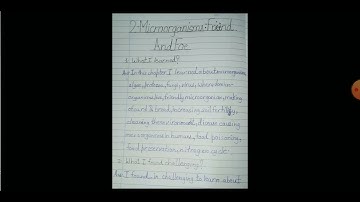 2. Microorganisms: Friend
And Foe
1. What I learned?
Ans In this chapter I learned about microorganisms,
algae, protozoa, fungi, virus, where do micro-
organisms live, friendly microorganisms, making
of curd & bread, increasing soil fertility,
cleaning the environment, disease causing
microorganisms in humans, food poisoning,
food preservation, nitrogen cycle.
2. What I found challenging?
Ans I found it challenging to learn about